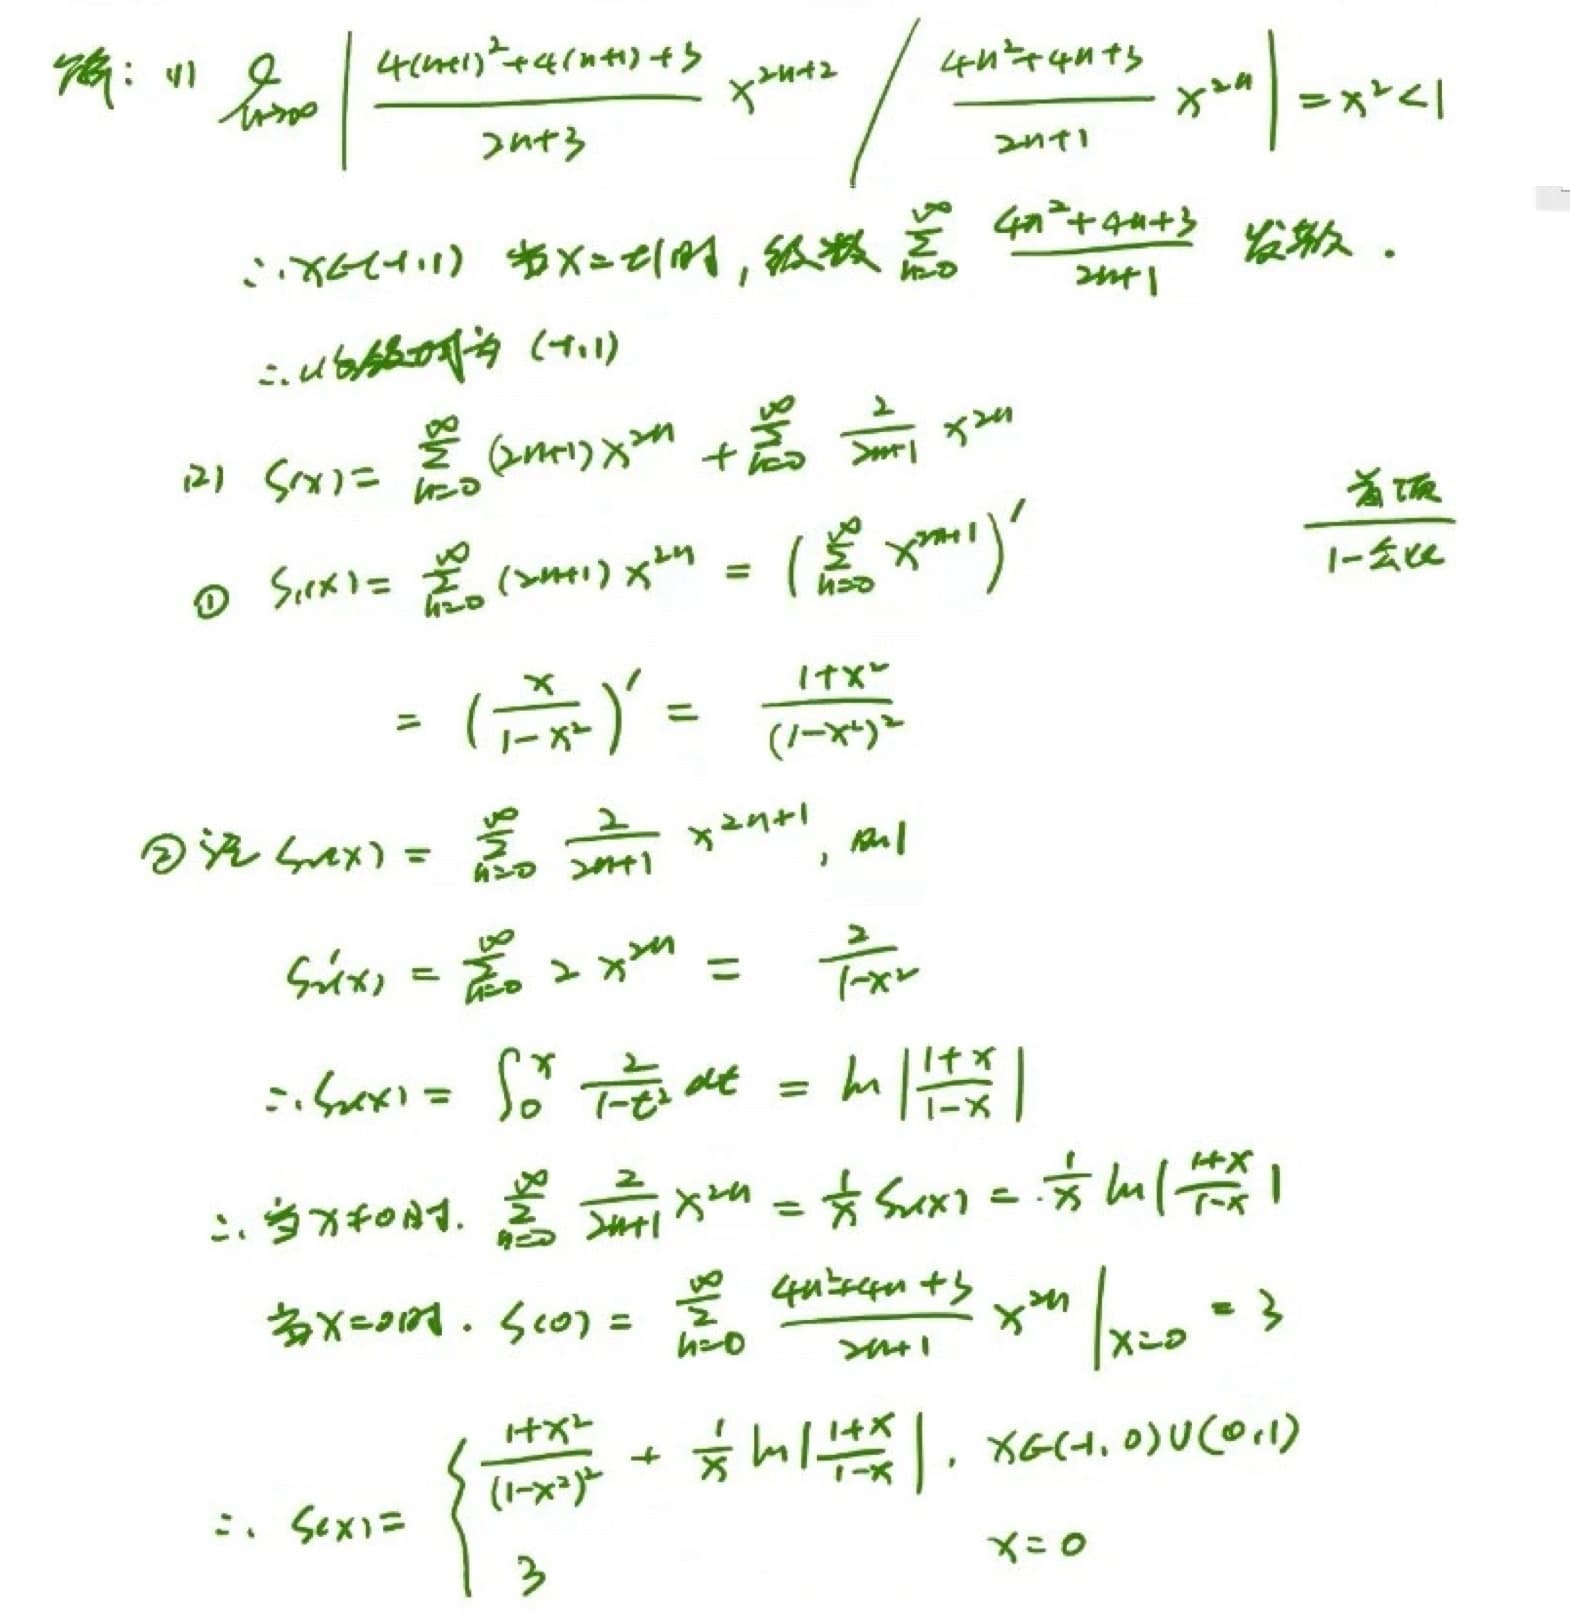 解: (1) lim_{n→∞} | \frac{4(n+1)^2+4(n+1)+3}{2n+3} x^{2n+2} / \frac{4n^2+4n+3}{2n+1} x^{2n} | = x^2 < 1
∴ x∈(-1,1) 当x=±1时, 级数 \sum_{n=0}^{∞} \frac{4n^2+4n+3}{2n+1} 发散.
∴ 收敛域为 (-1,1)
(2) S(x) = \sum_{n=0}^{∞} (2n+1) x^{2n} + \sum_{n=0}^{∞} \frac{2}{2n+1} x^{2n}
\frac{首项}{1-公比}
① S_1(x) = \sum_{n=0}^{∞} (2n+1) x^{2n} = ( \sum_{n=0}^{∞} x^{2n+1} )'
= ( \frac{x}{1-x^2} )' = \frac{1+x^2}{(1-x^2)^2}
② 设 S_2(x) = \sum_{n=0}^{∞} \frac{2}{2n+1} x^{2n+1}, 则
S_2'(x) = \sum_{n=0}^{∞} 2 x^{2n} = \frac{2}{1-x^2}
∴ S_2(x) = \int_0^x \frac{2}{1-t^2} dt = ln | \frac{1+x}{1-x} |
∴ 当x≠0时. \sum_{n=0}^{∞} \frac{2}{2n+1} x^{2n} = \frac{1}{x} S_2(x) = \frac{1}{x} ln | \frac{1+x}{1-x} |
当x=0时. S(0) = \sum_{n=0}^{∞} \frac{4n^2+4n+3}{2n+1} x^{2n} |_{x=0} = 3
∴ S(x) = { \frac{1+x^2}{(1-x^2)^2} + \frac{1}{x} ln | \frac{1+x}{1-x} |, x∈(-1,0)∪(0,1)
3 x=0